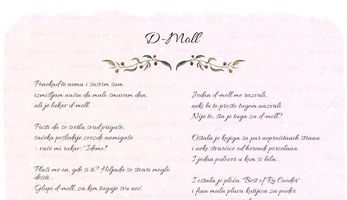 D-Moll
Ponekad te nema i sasvim sam
izmišljam način da malo smuvam dan,
ali je lukav d-moll.
Prsti da se svetla svud priguše,
saćeka poslednje zvezde namiguše
- ruče mi rukav: "Idemo!
Plaši me on, gde si ti? Hiljadu se strari moglo
desiti...
Glupi d-moll, za kim tuguje sru noć.
Jedan d-moll me razvali,
neki bi to prosto tugom nazvali.
Nije to, šta je tuga za d-moll?
Ostala je knjiga sa par nepročitanih strana
i neke stvarčice od herend porcelana.
I jedan pulover u kom si bila...
I ostala je ploča "Best of Ry Cooder"
i fina mala plava kutijica za puder